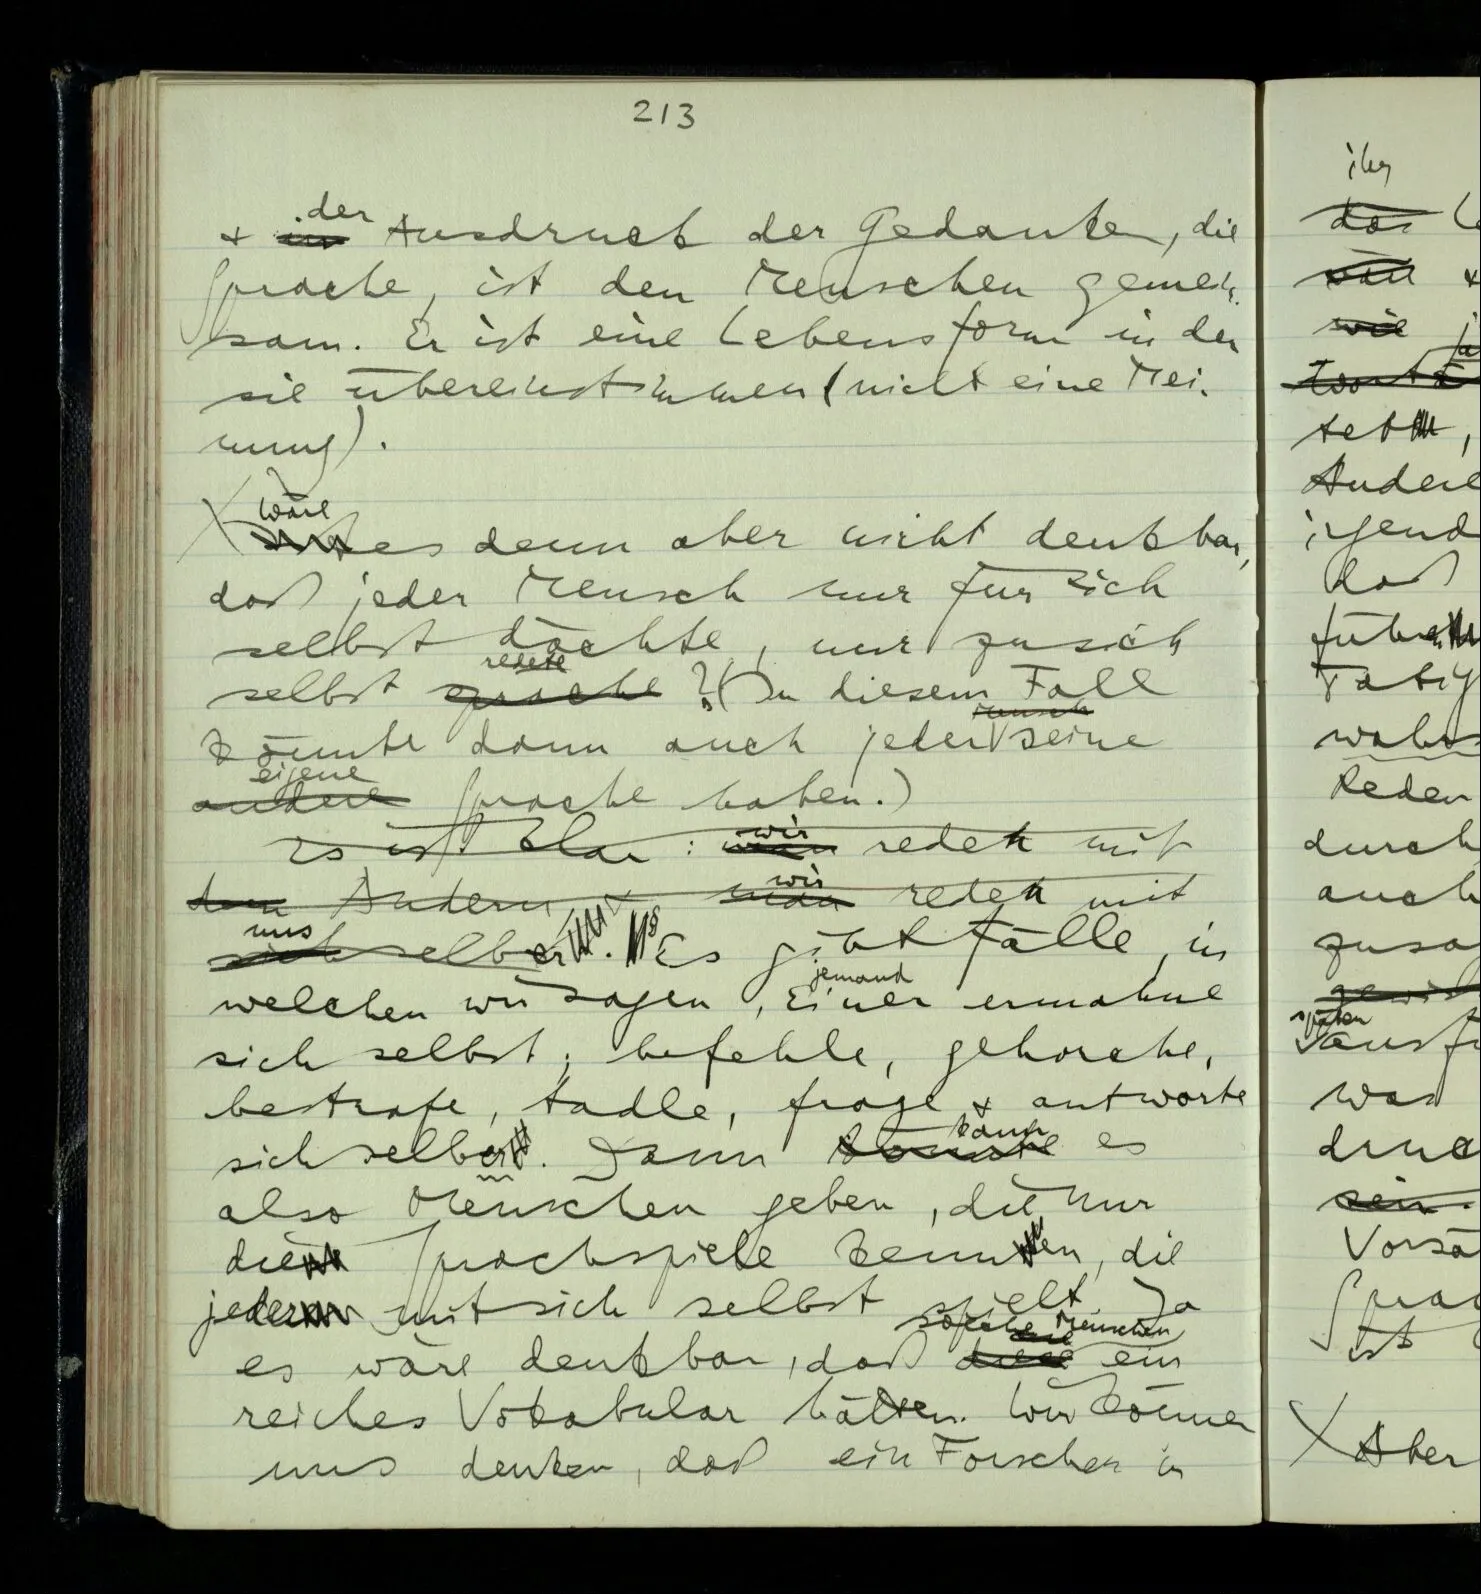 213
& ~~im~~ der Ausdruck der Gedanken, die
Sprache, ist den Menschen gemein-
sam. Er ist eine Lebensform in der
sie übereinstimmen (nicht eine Mei-
nung).
X wäre es denn aber nicht denkbar,
daß jeder Mensch nur für sich
selbst dächte, nur zu sich
selbst ~~spräche~~ redete? (In diesem Fall
könnte dann auch jeder ~~Mensch~~ seine
~~andere~~ eigene Sprache haben.)
~~Es ist klar: man wir reden mit~~
~~dem Andern, man wir reden mit~~
~~sich uns selber.~~ § Es gibt Fälle, in
welchen wir sagen, Einer jemand ermahne
sich selbst; befehle, gehorche,
bestrafe, tadle, frage & antworte
sich selber. Dann ~~könnte~~ kann es
also Menschen geben, die nur
die Sprachspiele kennen, die
jeder mit sich selbst spielt. Ja
es wäre denkbar, daß ~~diese~~ solche Menschen ein
reiches Vokabular hätten. Wir können
uns denken, daß ein Forscher in
ihr
~~das~~
~~wie~~
Andere
irgend
daß
Tätig
wahr
Reden
durch
auch
zusa
später
ausfü
was
druc
~~sein.~~
Vorsä
Sprac
ist
X Aber